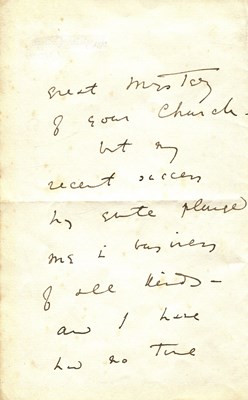 great mystery
of your Church –
but my
recent success
has quite plunged
me in business
of all kinds –
and I have
had no time